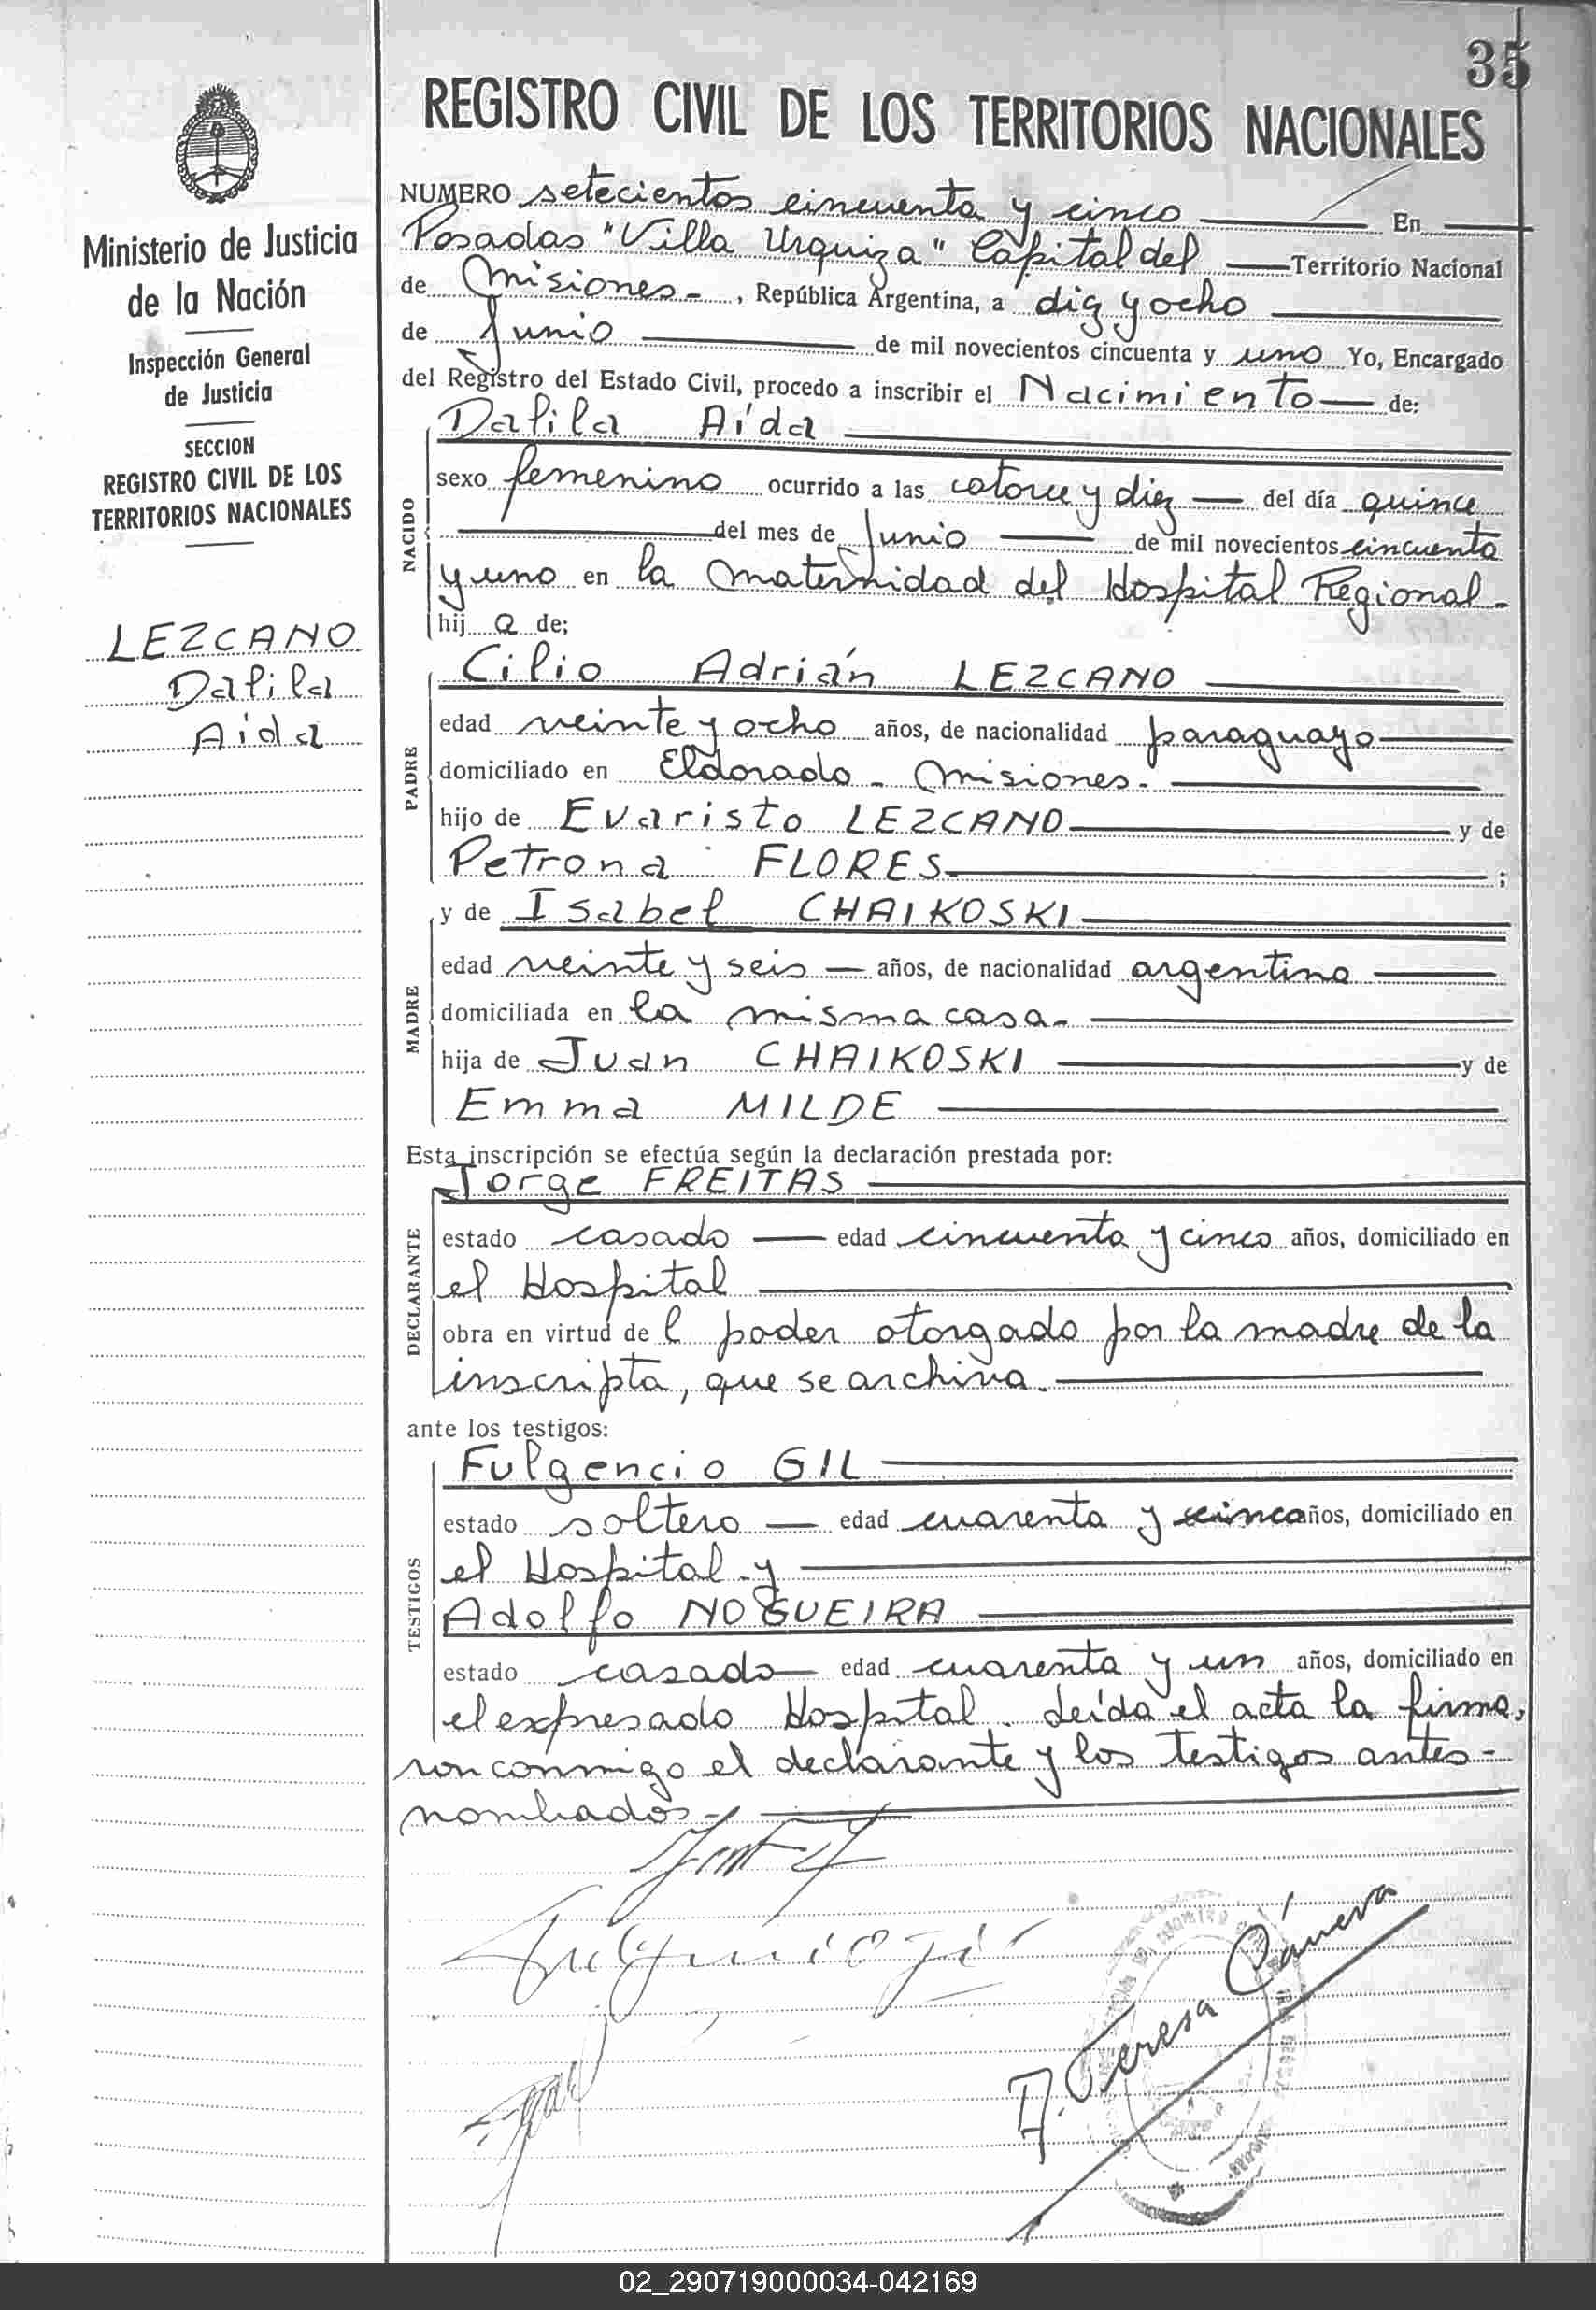 35
REGISTRO CIVIL DE LOS TERRITORIOS NACIONALES
Ministerio de Justicia
de la Nación
Inspección General
de Justicia
SECCION
REGISTRO CIVIL DE LOS
TERRITORIOS NACIONALES
LEZCANO
Dalila
Aida
NUMERO setecientos cincuenta y cinco En
Posadas "Villa Urquiza" Capital del Territorio Nacional
de Misiones-, República Argentina, a diez y ocho
de Junio de mil novecientos cincuenta y uno Yo, Encargado
del Registro del Estado Civil, procedo a inscribir el Nacimiento de:
NACIDO
Dalila Aída
sexo femenino ocurrido a las catorce y diez del día quince
del mes de Junio de mil novecientos cincuenta
y uno en la Maternidad del Hospital Regional-
hij a de;
PADRE
Cilio Adrián LEZCANO
edad veinte y ocho años, de nacionalidad paraguayo
domiciliado en Eldorado - Misiones.
hijo de Evaristo LEZCANO y de
Petrona FLORES ;
MADRE
y de Isabel CHAIKOSKI
edad veinte y seis años, de nacionalidad argentina
domiciliada en la misma casa-
hija de Juan CHAIKOSKI y de
Emma MILDE
Esta inscripción se efectúa según la declaración prestada por:
DECLARANTE
Jorge FREITAS
estado casado edad cincuenta y cinco años, domiciliado en
el Hospital
obra en virtud de l poder otorgado por la madre de la
inscripta, que se archiva.
ante los testigos:
TESTIGOS
Fulgencio GIL
estado soltero edad cuarenta y cinco años, domiciliado en
el Hospital - y
Adolfo NOGUEIRA
estado casado edad cuarenta y un años, domiciliado en
el expresado Hospital. Leída el acta la firma,
ron conmigo el declarante y los testigos antes-
nombrados-
Fulgencio Gil
D. Teresa Cáneva
02_290719000034-042169